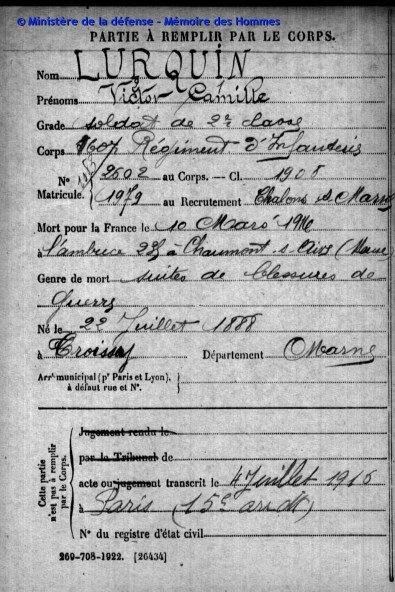 © Ministère de la défense - Mémoire des Hommes
PARTIE À REMPLIR PAR LE CORPS.
Nom LURQUIN
Prénoms Victor Camille
Grade soldat de 2e classe
Corps 160e Régiment d'Infanterie
N° 2502 au Corps. — Cl. 1908
Matricule. 1979 au Recrutement Chalons s Marne
Mort pour la France le 10 Mars 1916
à l'ambce à Chaumont s. Aire (Meuse
Genre de mort suites de blessures de
guerre
Né le 22 Juillet 1888
à Troissy Département Marne
Arrt municipal (pr Paris et Lyon),
à défaut rue et N°.
Cette partie
n'est pas à remplir
par le Corps.
Jugement rendu le
par le Tribunal de
acte ou jugement transcrit le 4 Juillet 1916
à Paris (15e arrdt)
N° du registre d'état civil
269-708-1922. [26434]